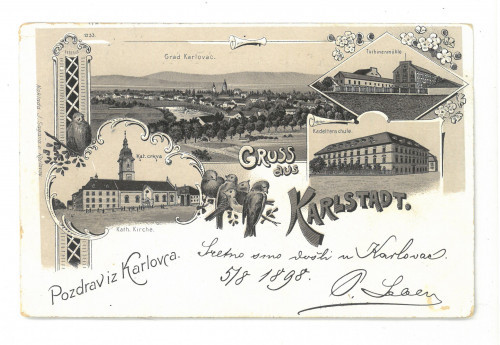 1533.
Grad Karlovac.
Turbinenmühle.
Kadettenschule.
GRUSS
aus
KARLSTADT.
Kat. crkva.
Kath. Kirche.
Pozdrav iz Karlovca.
Sretno smo došli u Karlovac
5/8 1898.